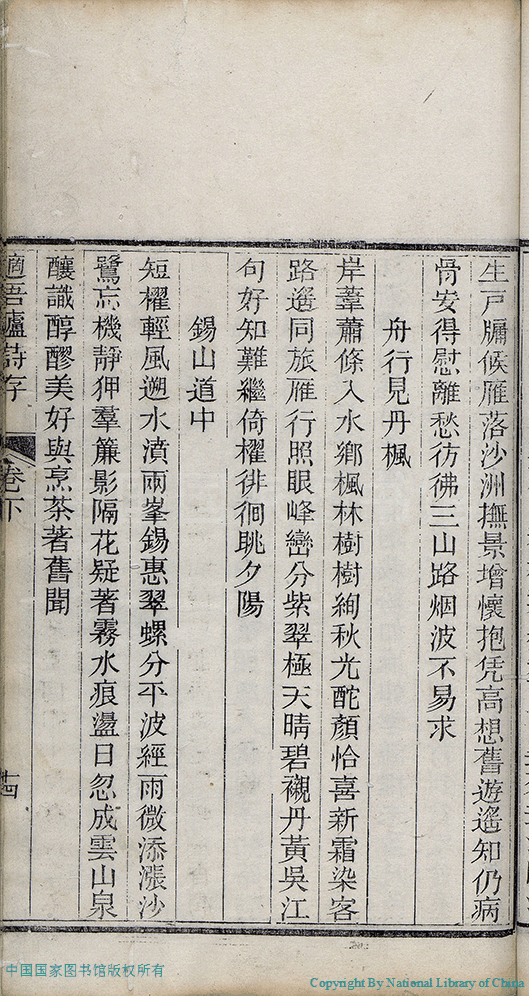 生戸牖候雁落沙洲撫景增懷抱凭高想舊遊遙知仍病
骨安得慰離愁彷彿三山路烟波不易求
舟行見丹楓
岸葦蕭條入水鄉楓林樹樹絢秋光酡顏恰喜新霜染客
路遙同旅雁行照眼峰巒分紫翠極天晴碧襯丹黃吳江
句好知難繼倚櫂徘徊眺夕陽
錫山道中
短櫂輕風遡水濆兩峯錫惠翠螺分平波經雨微添漲沙
鷺忘機靜狎羣簾影隔花疑著霧水痕盪日忽成雲山泉
釀識醇醪美好與烹茶著舊聞
適吾廬詩存
卷下
十四
中国国家图书馆版权所有
Copyright By National Library of China